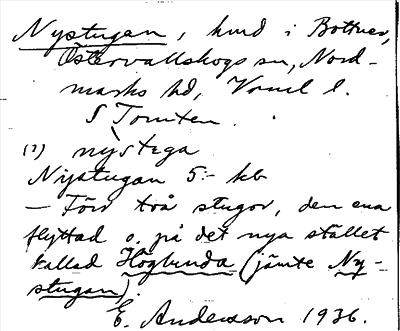 Nystugan, hmd i Bottnes,
Östervallskogs sn, Nord-
marks hd, Vrml l.
S Tomten.
(?) nystega
Nystugan 5:- kb
— Förr två stugor, den ena
flyttad o. på det nya stället
kallad Höglunda (jämte Ny-
stugan).
E. Andersson 1936.